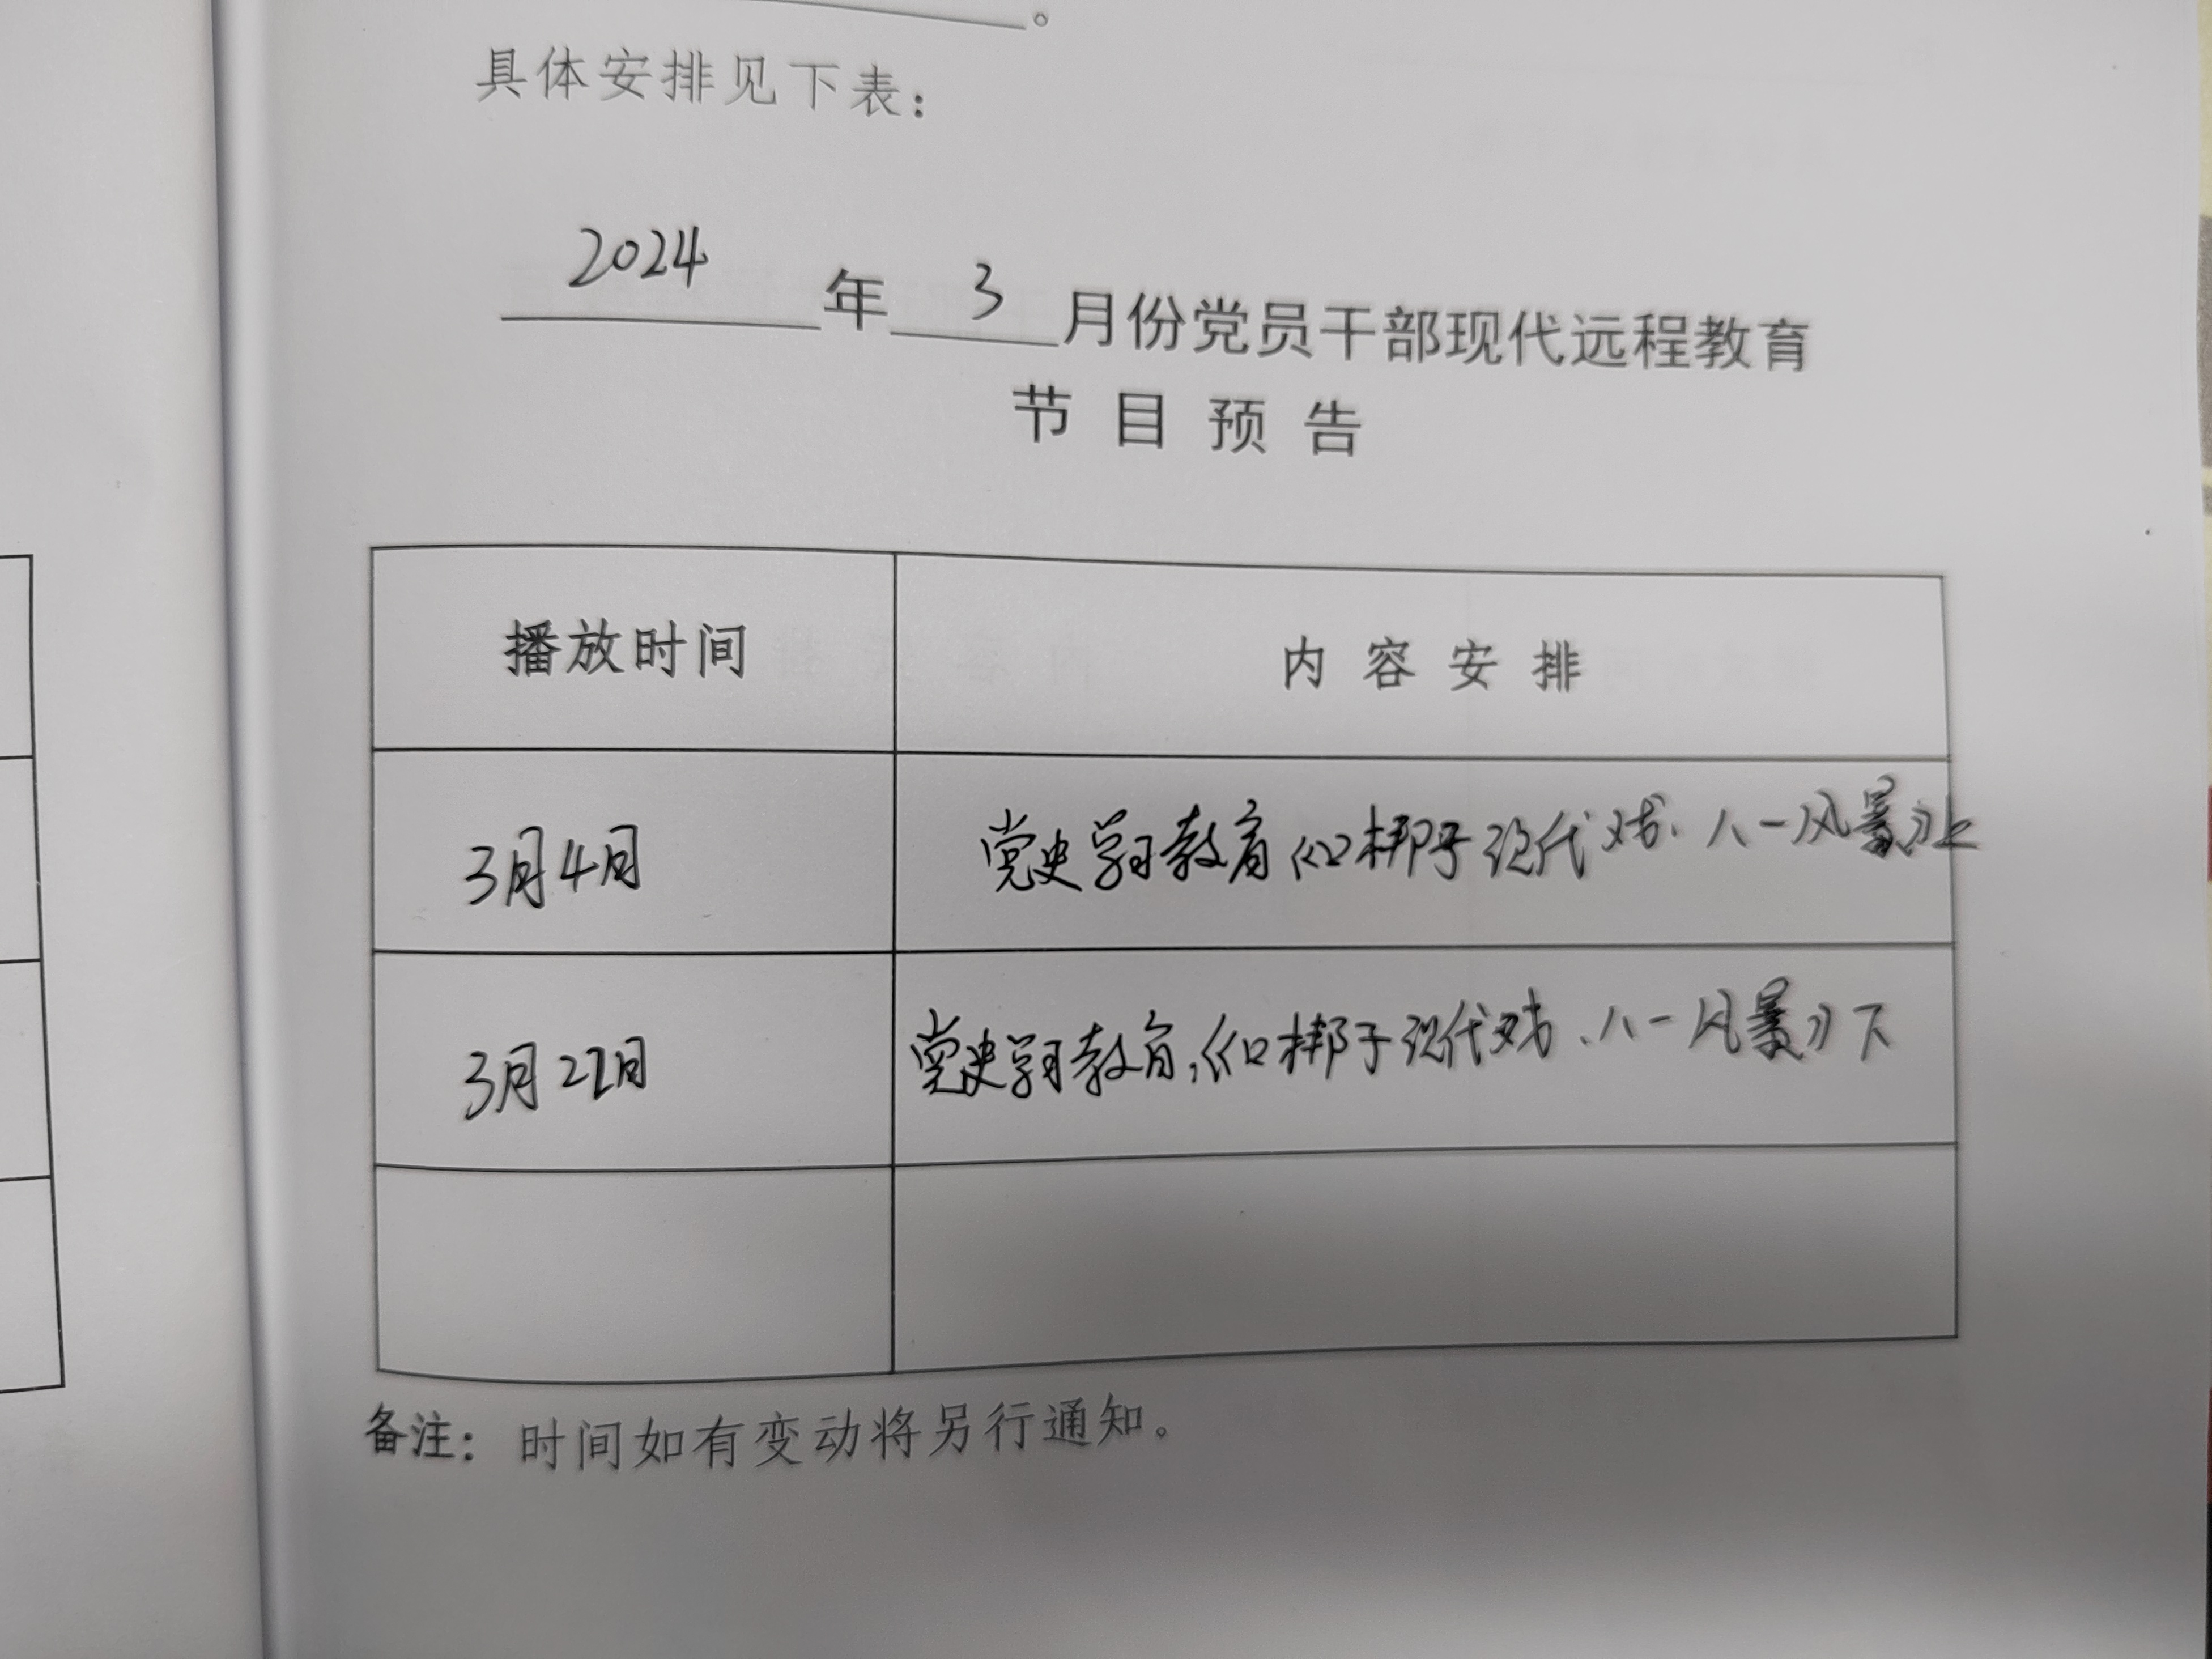 具体安排见下表：
2024年3月份党员干部现代远程教育
节目预告
播放时间 内容安排
3月4日 党史学习教育《口梆子现代戏、八一风暴》上
3月22日 党史学习教育,《口梆子现代戏、八一风暴》下
备注：时间如有变动将另行通知。